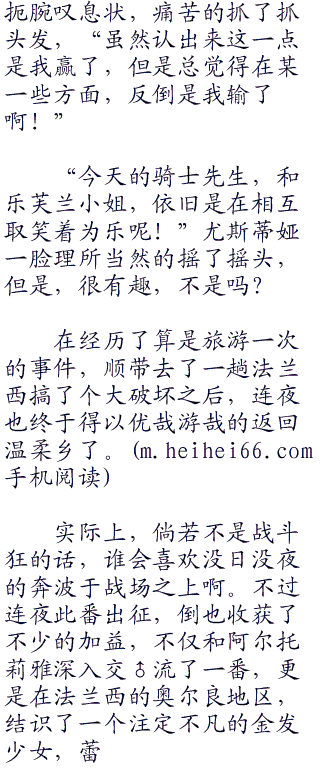 扼腕叹息状，痛苦的抓了抓
头发，“虽然认出来这一点
是我赢了，但是总觉得在某
一些方面，反倒是我输了
啊！”
“今天的骑士先生，和
乐芙兰小姐，依旧是在相互
取笑着为乐呢！”尤斯蒂娅
一脸理所当然的摇了摇头，
但是，很有趣，不是吗？
在经历了算是旅游一次
的事件，顺带去了一趟法兰
西搞了个大破坏之后，连夜
也终于得以优哉游哉的返回
温柔乡了。(m.heihei66.com
手机阅读)
实际上，倘若不是战斗
狂的话，谁会喜欢没日没夜
的奔波于战场之上啊。不过
连夜此番出征，倒也收获了
不少的加益，不仅和阿尔托
莉雅深入交♂流了一番，更
是在法兰西的奥尔良地区，
结识了一个注定不凡的金发
少女，蕾